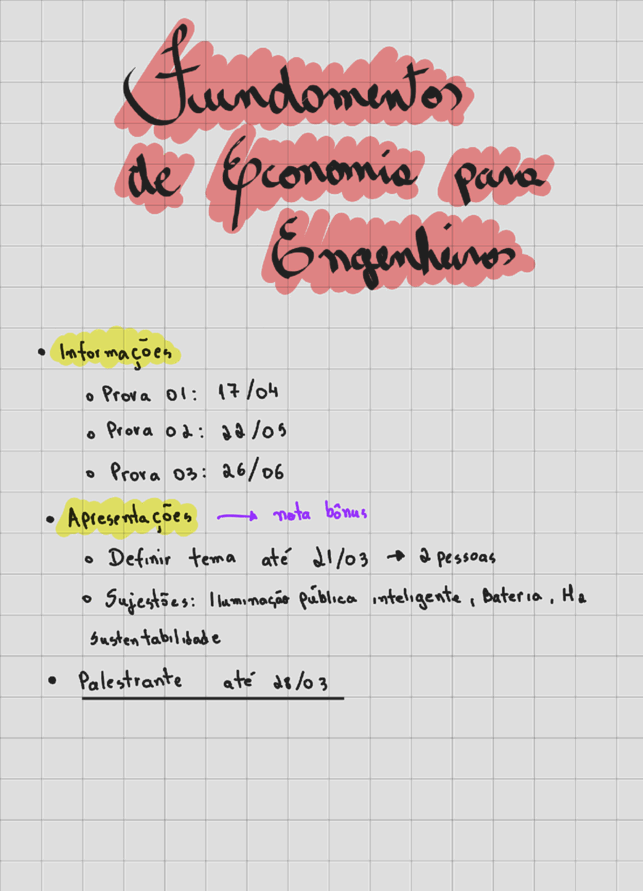 Fundamentos
de Economia para
Engenheiros
• Informações
∘ Prova 01: 17/04
∘ Prova 02: 22/05
∘ Prova 03: 26/06
• Apresentações → nota bônus
∘ Definir tema até 21/03 → 2 pessoas
∘ Sujestões: Iluminação pública inteligente, Bateria, H2
sustentabilidade
• Palestrante até 28/03